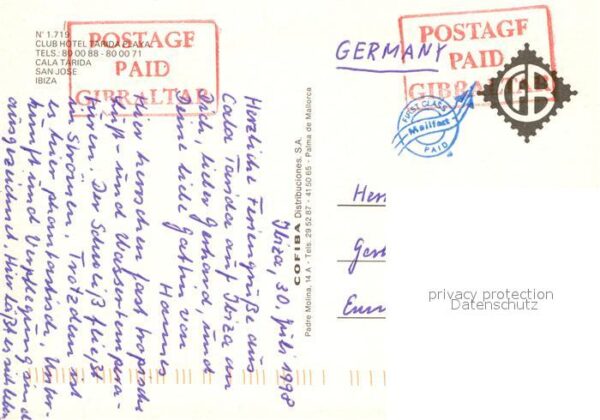 N° 1.719
CLUB HOTEL TARIDA PLAYA
TELS.: 80 00 88 - 80 00 71
CALA TARIDA
SAN JOSE
IBIZA
POSTAGE
PAID
GIBRALTAR
GERMANY
POSTAGE
PAID
GIBRALTAR
FIRST CLASS
Mailfast
PAID
GB
Ibiza, 30. Juli 1998
Herzliche Feriengrüße aus
Cala Tarida auf Ibiza an
Dich, lieber Gerhard, und
Deine liebe Gattin von
Hannes
Hier herrschen fast tropische
Luft- und Wassertempera-
turen. Der Schweiß fließt
in Strömen. Trotzdem ist
es hier phantastisch. Unter-
kunft und Verpflegung sind
ausgezeichnet. Hier läßt es sich leben
COFIBA Distribuciones, S.A.
Padre Molina, 14 A - Tels. 29 52 87 - 41 50 65 - Palma de Mallorca
privacy protection
Datenschutz